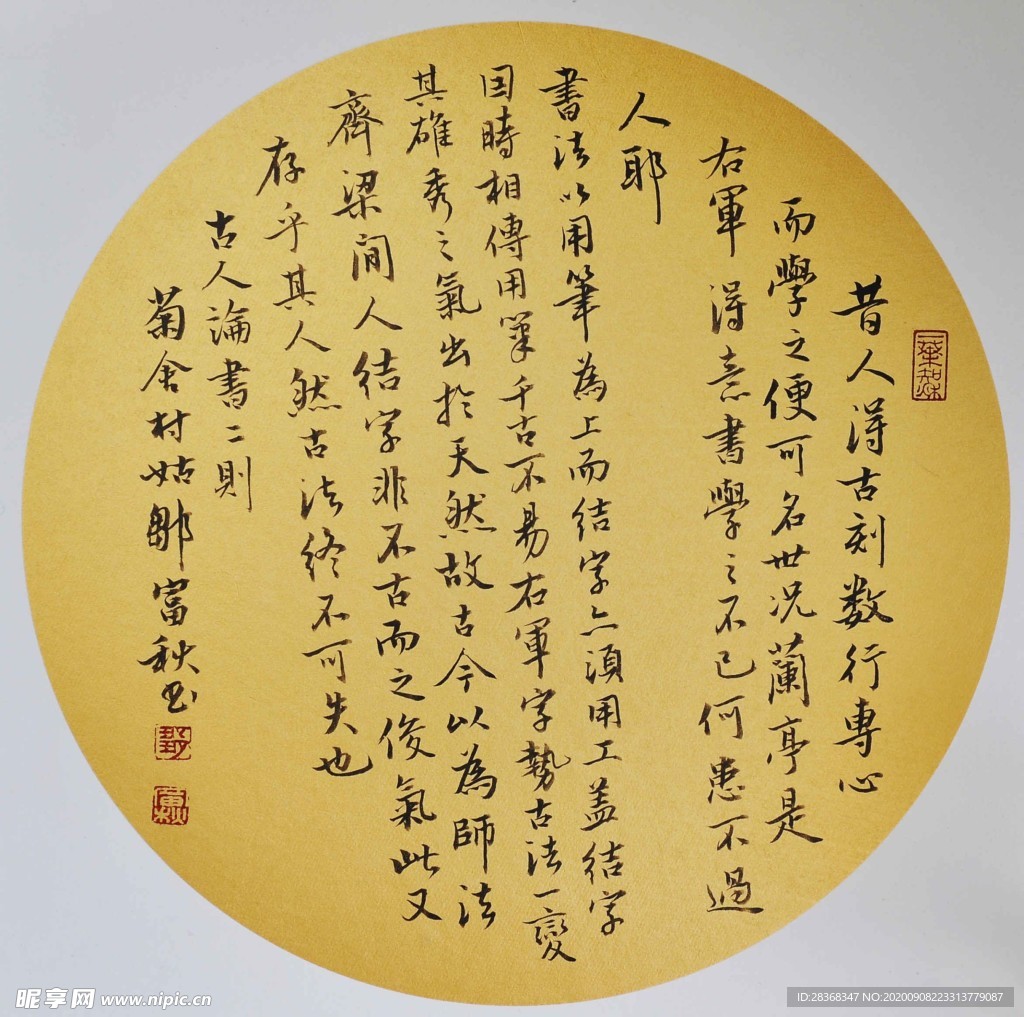 昔人得古刻数行専心
而學之便可名世况蘭亭是
右軍得意書學之不已何患不過
人耶
書法以用筆為上而结字亦須用工盖结字
因時相傳用筆千古不易右軍字勢古法一變
其雄秀之氣出於天然故古今以為師法
齊梁间人结字非不古而之俊氣此又
存乎其人然古法终不可失也
古人論書二則
菊舍村姑鄒富秋书
昵享网 www.nipic.cn
ID:28368347 NO:20200908223313779087